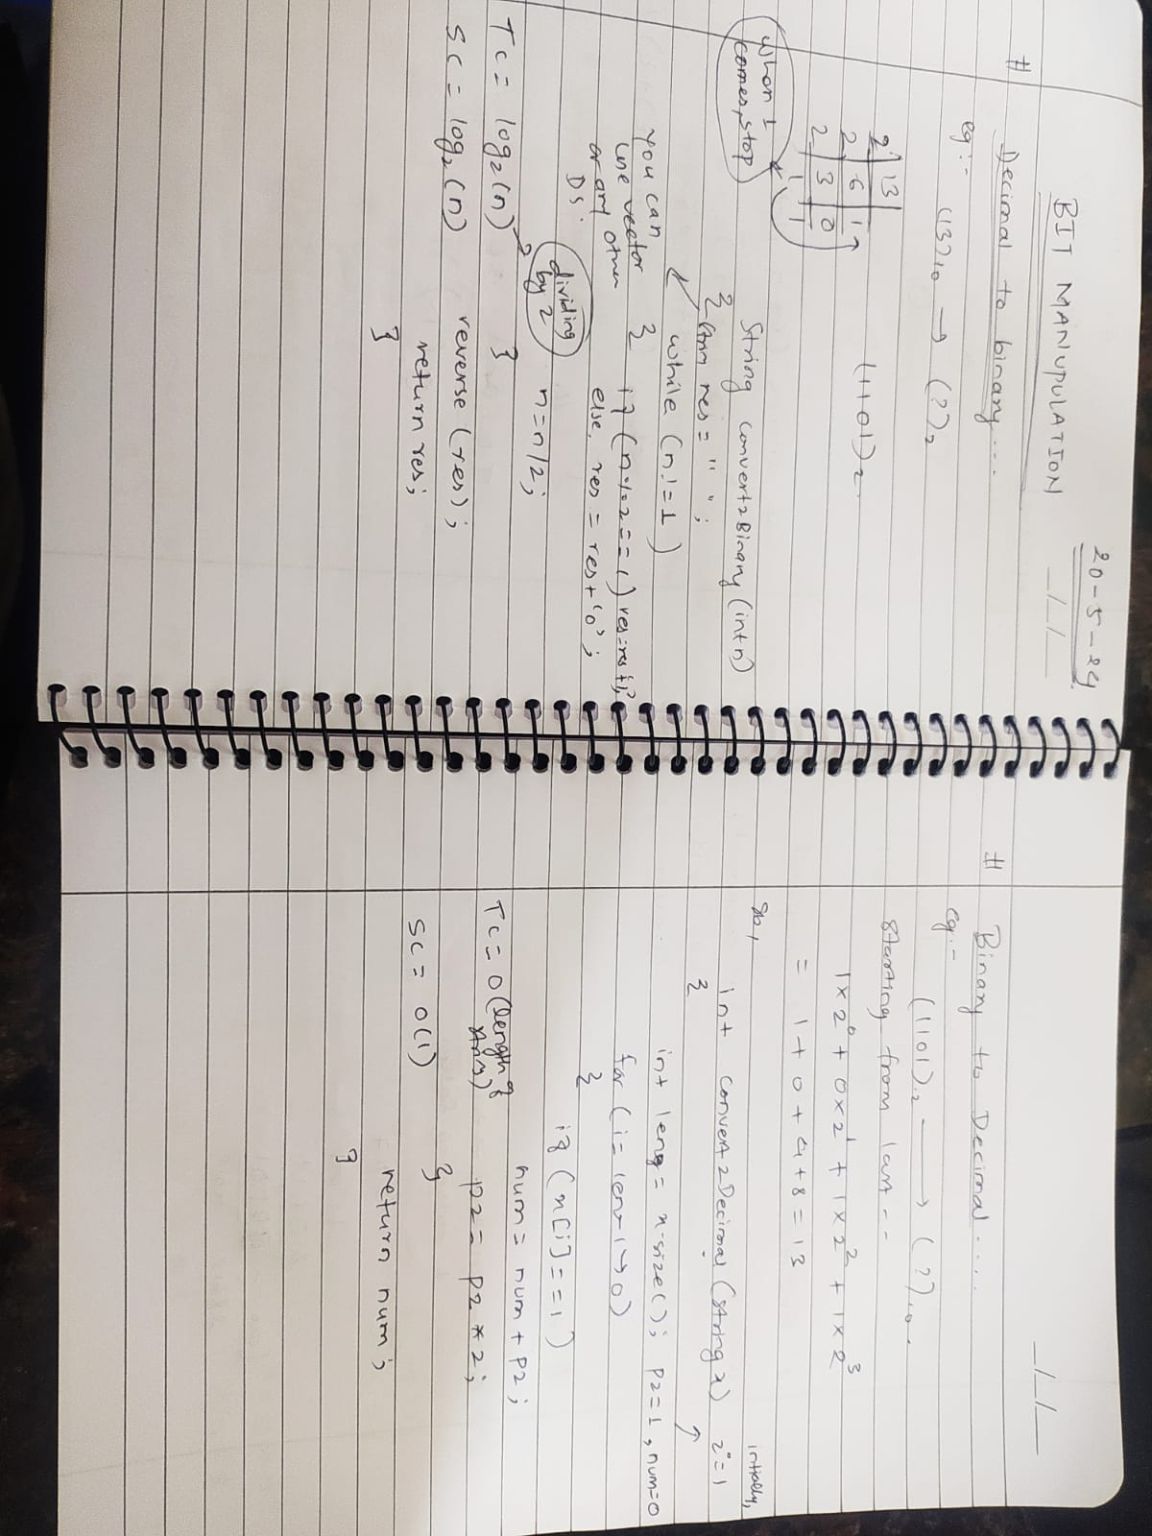 20-5-24
_/_/_
BIT MANUPULATION
# Decimal to binary....
eg:- (13)10 → (??)2
2 | 13
2 | 6 | 1
2 | 3 | 0
1 | 1
(1101)2
when 1
comes, stop
String convert2Binary (int n)
{ res = " ";
while (n != 1)
you can
use vector
or any other
DS.
{ if (n%2==1) res=res+'1';
else, res = res + '0';
n = n/2;
dividing
by 2
}
TC = log2(n)
SC = log2(n)
reverse (res);
return res;
}
_/_/_
# Binary to Decimal.....
eg:-
(1101)2 → (?)10.
starting from last --
1x2⁰ + 0x2¹ + 1x2² + 1x2³
= 1 + 0 + 4 + 8 = 13
so,
initially,
int convert2Decimal (string x) 2⁰=1
{
int leng = x.size(); p2=1, num=0
for (i = len-1 → 0)
{
if (x[i]==1)
num = num + p2;
p2 = p2 * 2;
}
TC = O(length of
string)
SC = O(1)
return num;
}